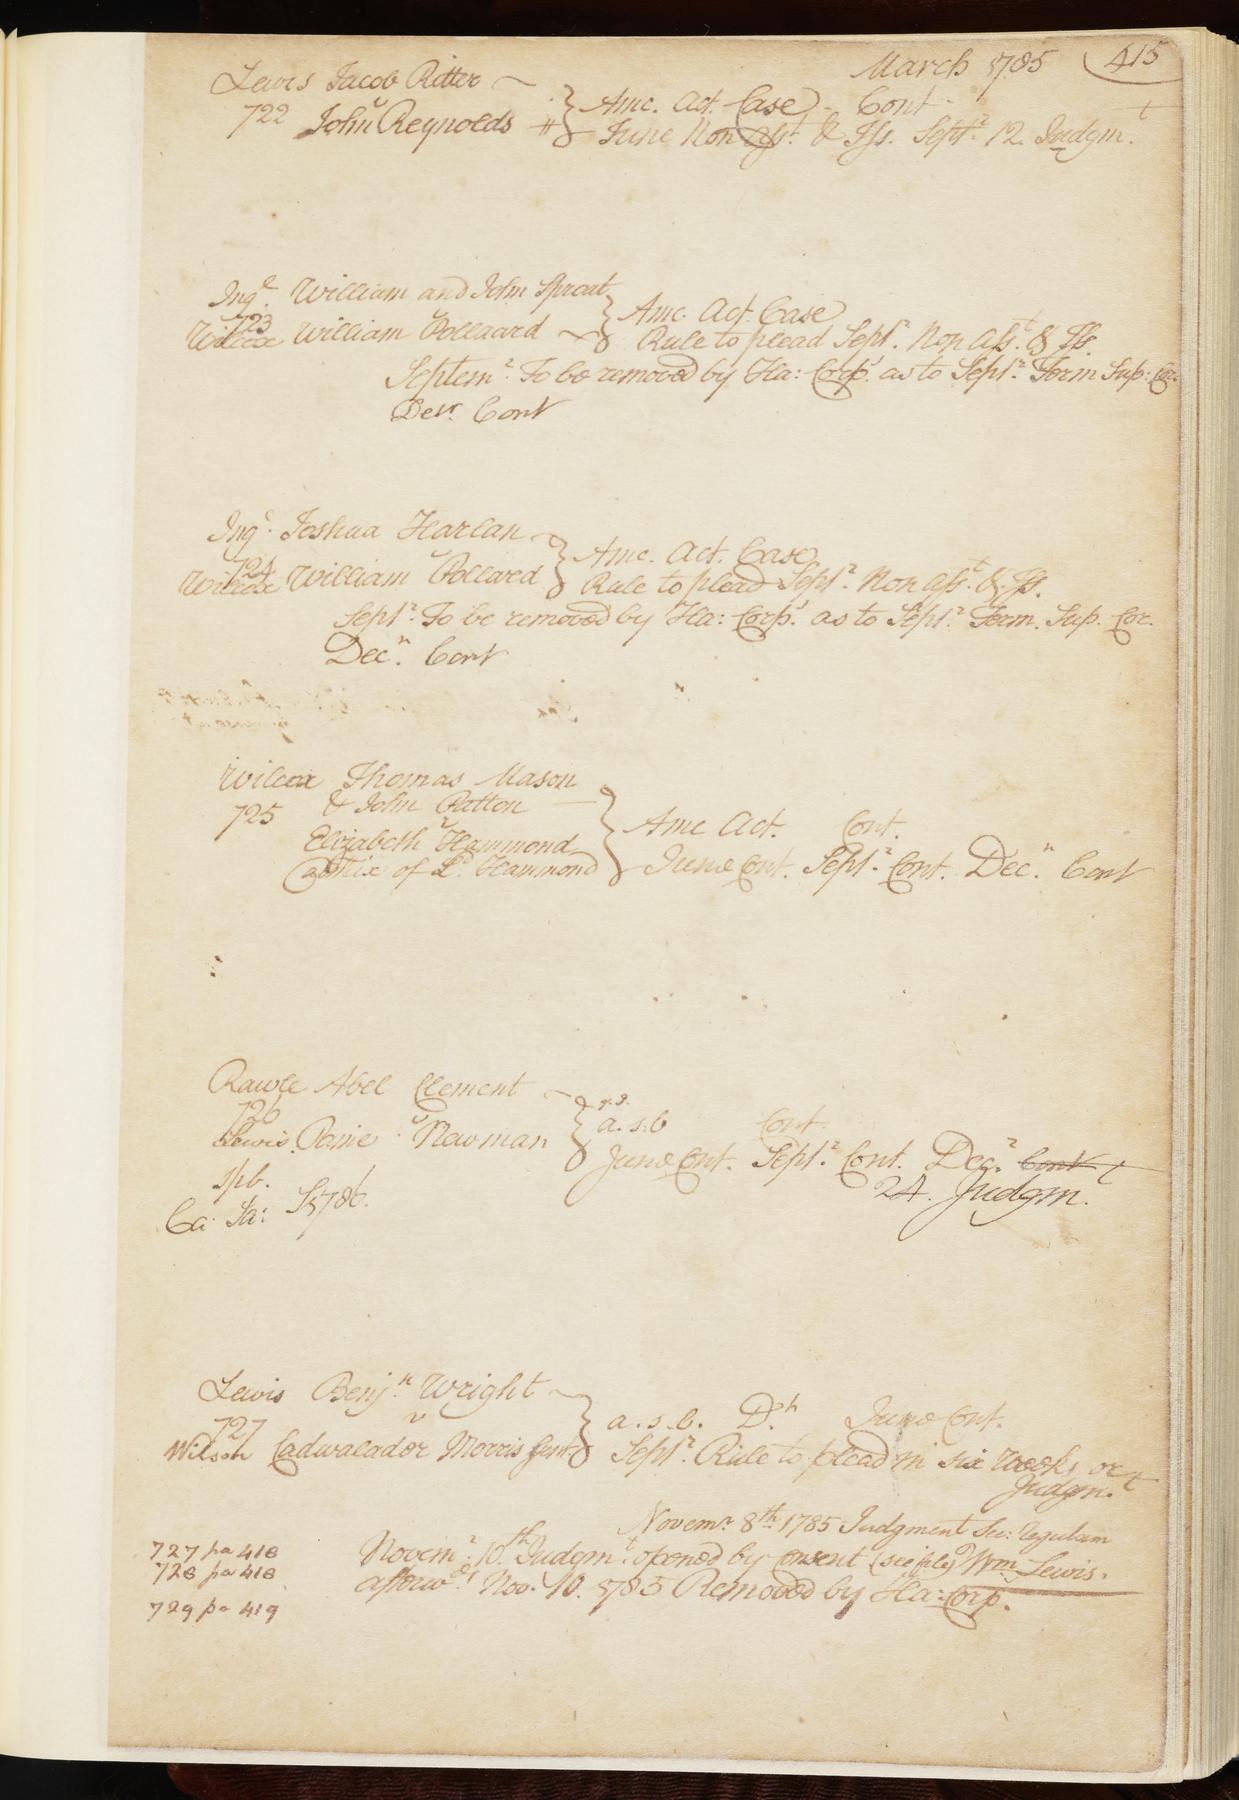 March 1785 415
Lewis Jacob Ritter
v
722 John Reynolds
Amc. Act. Case Cont
June Non Ass.t & Iss. Sept.r 12. Judgm.t
Ing.l William and John Sproat
723
Wilcox William Pollard
Amc. Act. Case
Rule to plead Sept.r Non Ass.t & Iss.
Septem.r To be removed by Ha: Corp.s as to Sept.r Term Sup: Cor.
Dec.r Cont
Ing.l Joshua Harlan
v
724
Wilcox William Pollard
Amc. Act. Case
Rule to plead Sept.r Non Ass.t & Iss.
Sept.r To be removed by Ha: Corp.s as to Sept.r Term. Sup. Cor.
Dec.r Cont
Wilcox Thomas Mason
725 & John Patton
v
Elizabeth Hammond
of L.d Hammond
Amc Act. Cont.
June Cont. Sept.r Cont. Dec.r Cont
Rawle Abel Clement
726 v
Lewis Paine Newman
spb.
Ca: Sa: S 1786.
a.s.b Cont.
June Cont. Sept.r Cont. Dec.r Cont
24. Judgm.t
Lewis Benj.n Wright
727 v
Wilson Cadwalader Morris
a.s.b. D.h June Cont.
Sept.r Rule to plead in six weeks or
Judgm.t
Novem.r 8th 1785 Judgment Sec: Regulam
Novem.r 10.th Judgm.t opened by consent (see file) Wm. Lewis.
afterw.ds Nov. 10. 1785 Removed by Ha: Corp.
727 pa 418
728 pa 418
729 pa 419